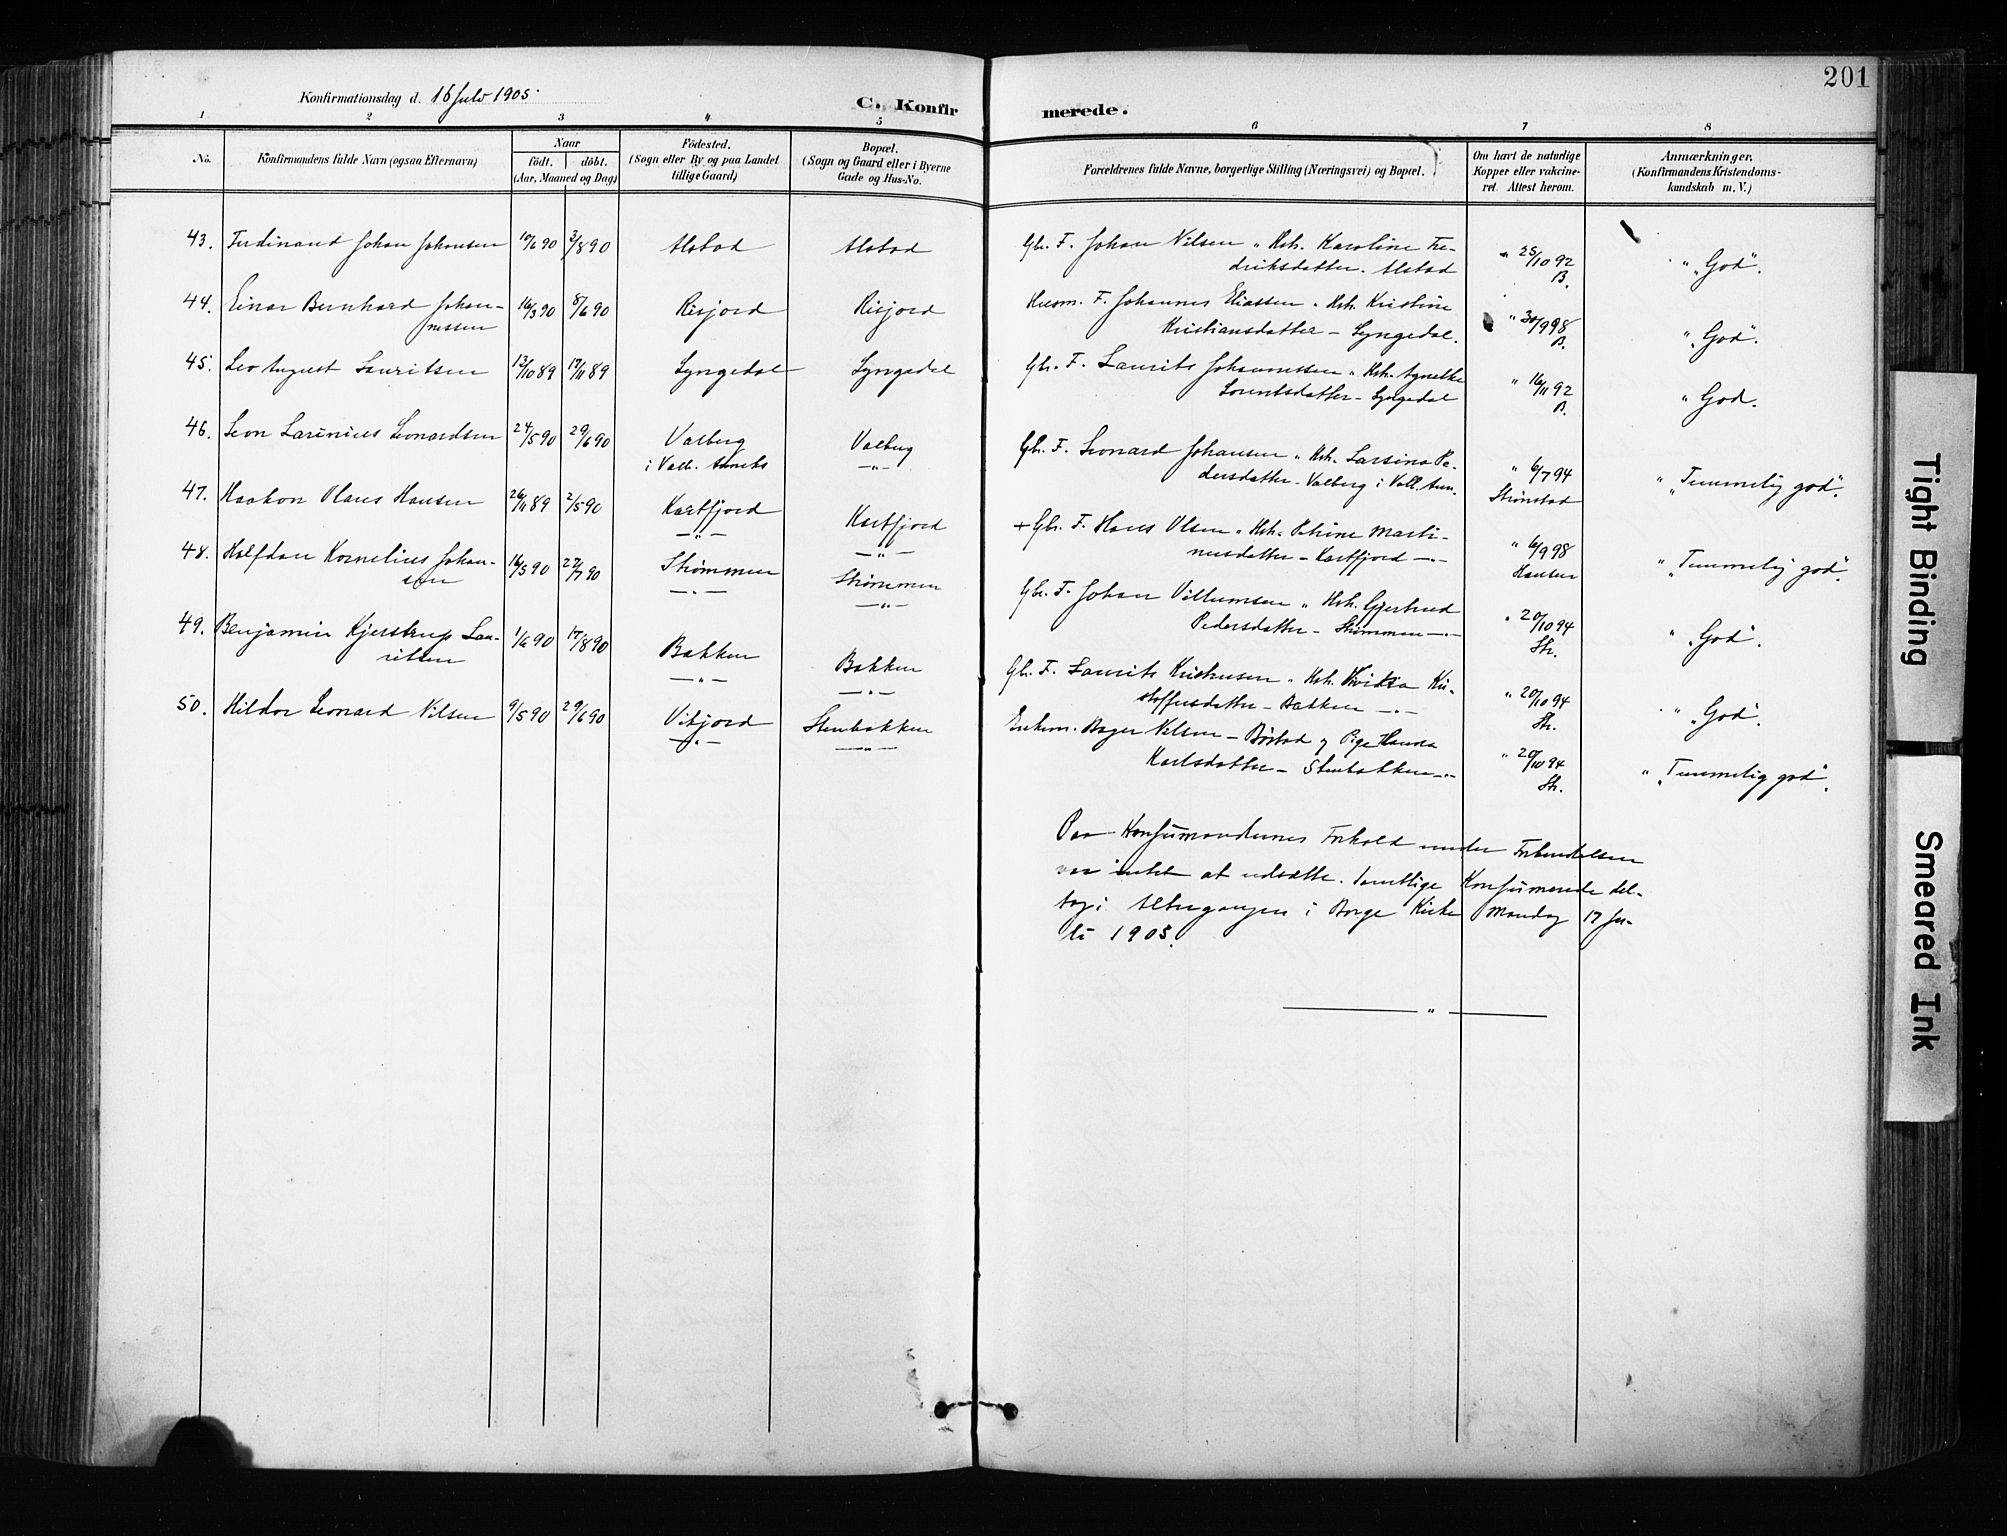 201
Konfirmationsdag d. 16 Juli 1905.
C. Konfirmerede.
1 2 3 4 5 6 7 8
No.
Konfirmandens fulde Navn (ogsaa Efternavn)
Naar
født. døbt.
(Aar, Maaned og Dag)
Fødested.
(Sogn eller By og paa Landet
tillige Gaard)
Bopæl.
(Sogn og Gaard eller i Byerne
Gade og Hus-No.
Forældrenes fulde Navne, borgerlige Stilling (Næringsvei) og Bopæl.
Om havt de naturlige
Kopper eller vakcine-
ret. Attest herom.
Anmærkninger.
(Konfirmandens Kristendoms-
kundskab m. V.)
43. Ferdinand Johan Johansen 10/6 90 3/8 90 Alstad Alstad Gbr. F. Johan Nilsen " Hst. Karoline Fre-
driksdatter. Alstad " 25/10 92 B. " "God".
44. Einar Bernhard Johan-
nessen 16/3 90 8/6 90 Risjord Risjord Husm. F. Johannes Eliassen " Hst. Kristine
Kristiansdatter - Lyngedal. " 30/9 98 B. " "God".
45. Leo August Lauritsen 13/10 89 17/11 89 Lyngedal Lyngedal Gbr. F. Laurits Johannessen " Hst. Agnethe
Lorentsdatter - Lyngedal " 16/11 92 B. " God.
46. Leon Larinius Leonardsen 24/5 90 29/6 90 Valberg
i Valb. Anneks Valberg
-"- Gbr. F. Leonard Johansen " Hst. Larsina Pe-
dersdatter - Valberg i Valb. Ann. " 6/7 94
Strömstad " "Temmelig god".
47. Haakon Olaus Hansen 26/11 89 2/5 90 Kartfjord
-"- Kartfjord
-"- + Gbr. F. Hans Olsen " Hst. Petrine Marti-
nusdatter - Kartfjord -"- " 6/9 98
Hansen " "Temmelig god".
48. Halfdan Kornelius Johan-
sen 16/5 90 27/7 90 Strømmen
-"- Strømmen
-"- Gbr. F. Johan Villumsen " Hst. Gjertrud
Pedersdatter - Strømmen -"- " 20/10 94
Str. " "God".
49. Benjamin Kjerstrup Lau-
ritsen 1/6 90 17/8 90 Bakken
-"- Bakken
-"- Gbr. F. Laurits Kristensen " Hst. Kri-
stoffersdatter - Bakken -"- " 20/10 94
Str. " "God".
50. Hildor Leonard Nilsen 9/5 90 29/6 90 Vikjord
-"- Stenbakken
-"- Enkem. Nilsen - Børstad og Pige Hanna
Karlsdatter - Stenbakken -"- " 20/10 94
Str. " "Temmelig god".
Paa Konfirmandernes Forhold under Forberedelsen
var intet at udsætte. Samtlige Konfirmerede del-
tog i Altergangen i Borge Kirke Mandag 17 Ju-
li 1905.
Tight Binding
Smeared Ink